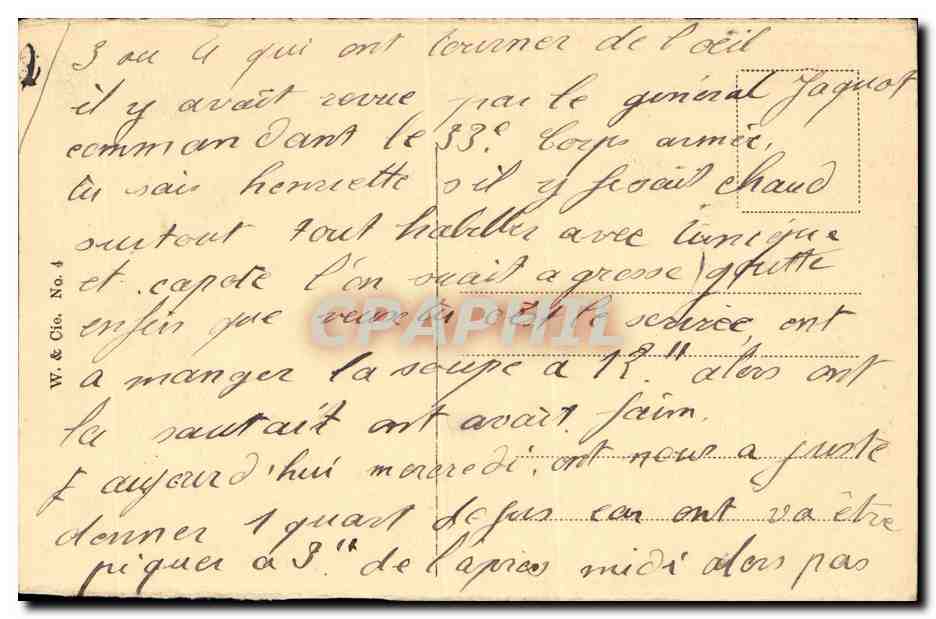 3 ou 4 qui ont tourner de l'oeil
il y avait revue par le général Jaquot
commandant le 33e Corps armée,
tu sais henriette s'il y fesait chaud
surtout tout habiller avec tunique
et capote l'on suait a grosse goutte
enfin que veux tu c'est le service, ont
a manger la soupe a 12" alors ont
la sautait ont avait faim.
aujourd'hui mercredi. ont nous a juste
donner 1 quart de jus car ont va être
piquer a 3" de l'après midi alors pas
W. & Cie. No. 4
CPAPHIL